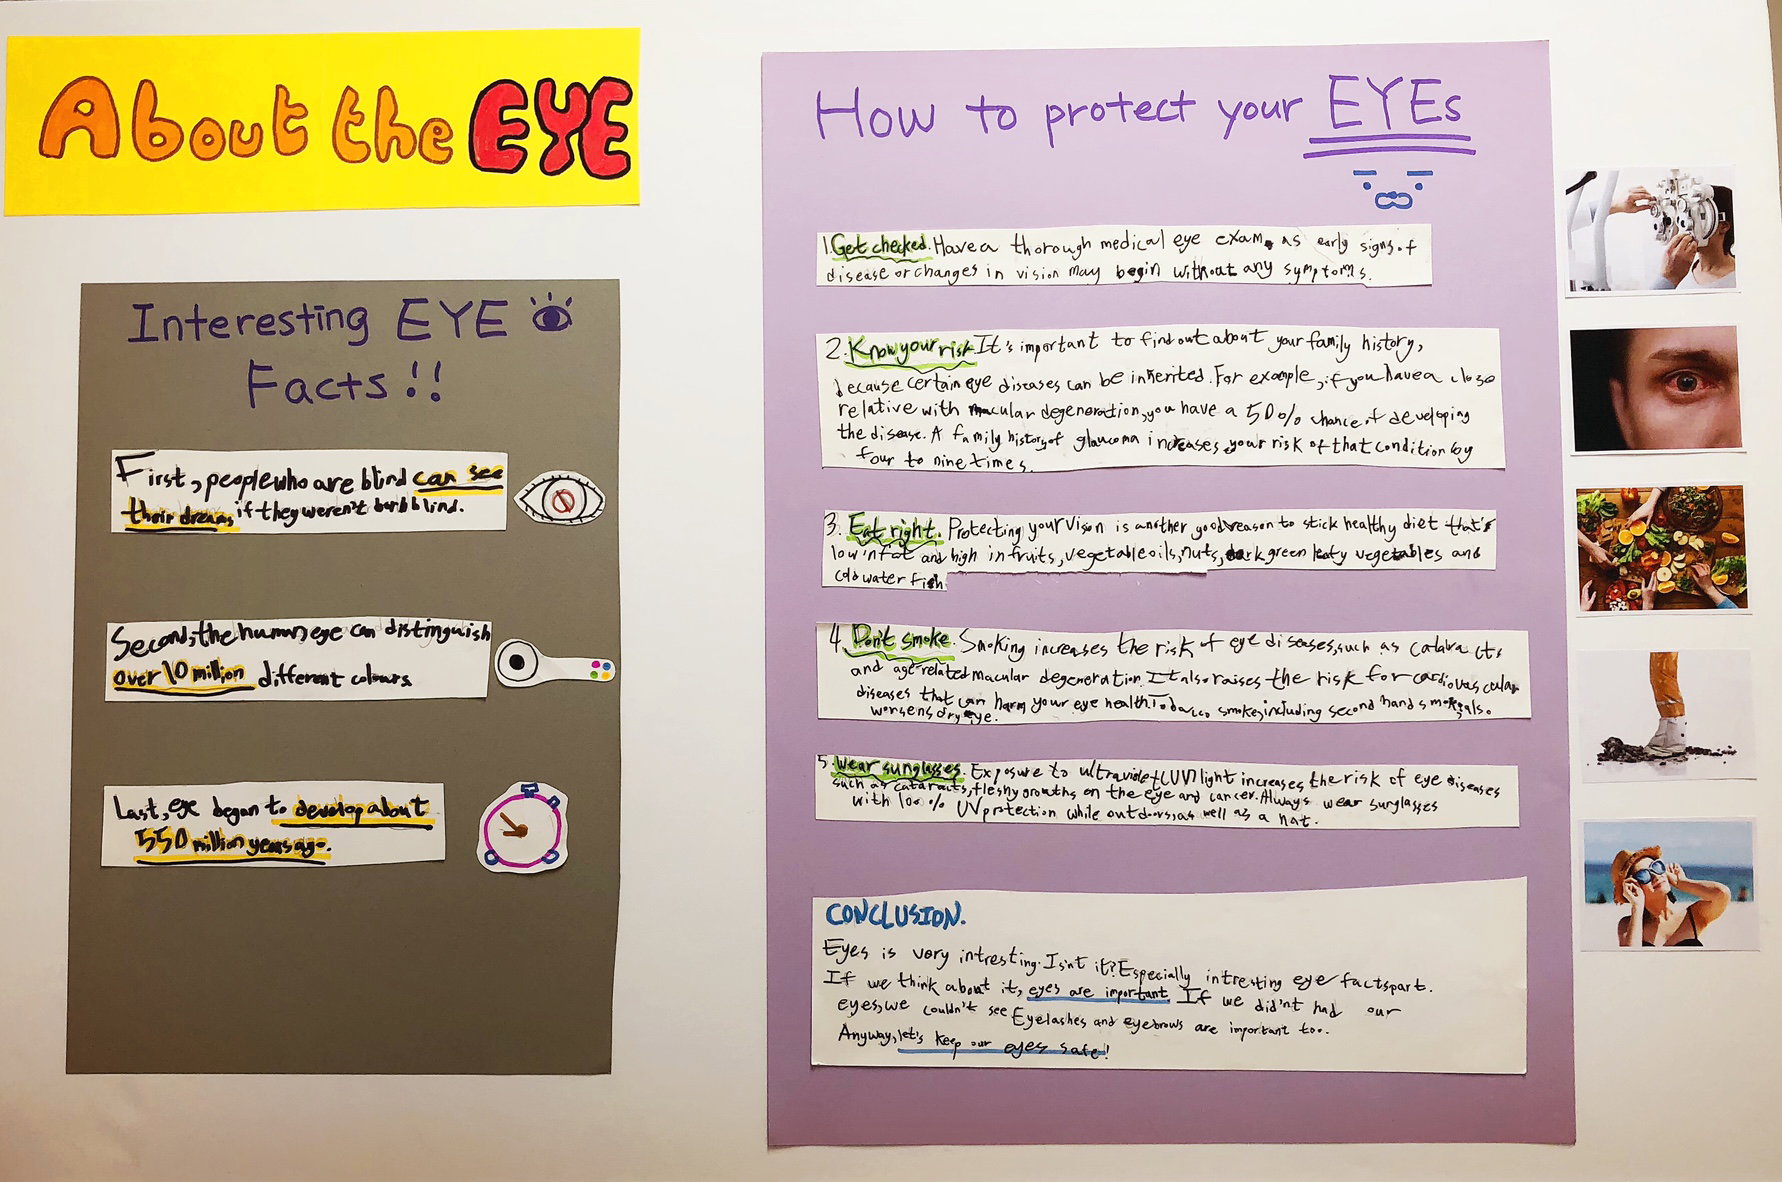 About the EYE
Interesting EYE
Facts!!
First, people who are blind can see
their dreams if they weren't born blind.
Second, the human eye can distinguish
over 10 million different colours
Last, eye began to develop about
550 million years ago.
How to protect your EYEs
1. Get checked. Have a thorough medical eye exam, as early signs of
disease or changes in vision may begin without any symptoms.
2. Know your risk It's important to find out about your family history,
because certain eye diseases can be inherited. For example, if you have a close
relative with macular degeneration, you have a 50% chance of developing
the disease. A family history of glaucoma increases your risk of that condition by
four to nine times.
3. Eat right. Protecting your vision is another good reason to stick healthy diet that's
low in fat and high in fruits, vegetable oils, nuts, dark green leafy vegetables and
cold water fish
4. Don't smoke. Smoking increases the risk of eye diseases, such as cataracts
and age-related macular degeneration. It also raises the risk for cardiovascular
diseases that can harm your eye health. Tobacco smoke, including second hand smoke, als.
worsens dry eye.
5. Wear sunglasses. Exposure to ultraviolet (UV) light increases the risk of eye diseases
such as cataracts, fleshy growths on the eye and cancer. Always wear sunglasses
with 100% UV protection while outdoors, as well as a hat.
CONCLUSION.
Eyes is very intresting. Isn't it? Especially intresting eye facts part.
If we think about it, eyes are important. If we didn't had our
eyes, we couldn't see Eyelashes and eyebrows are important too.
Anyway, let's keep our eyes safe!